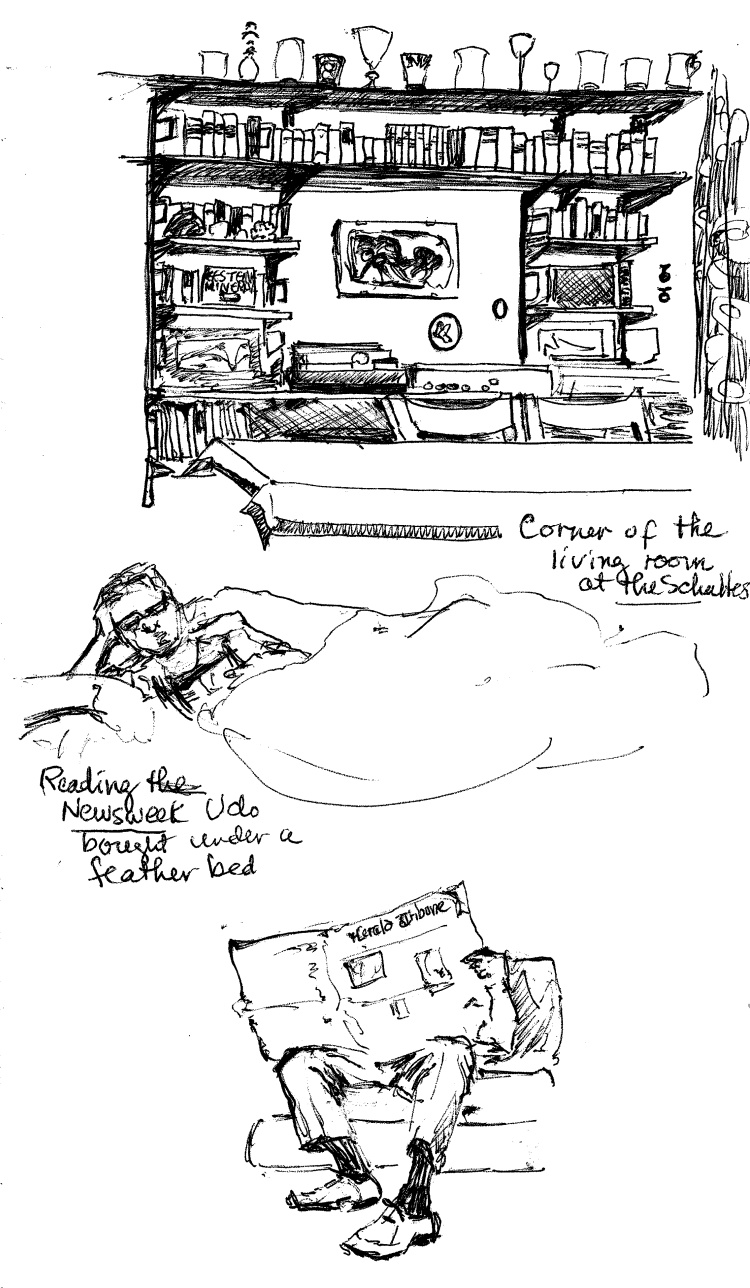 Corner of the
living room
at the Schultes
Reading the
Newsweek Udo
bought under a
feather bed
Herald Tribune